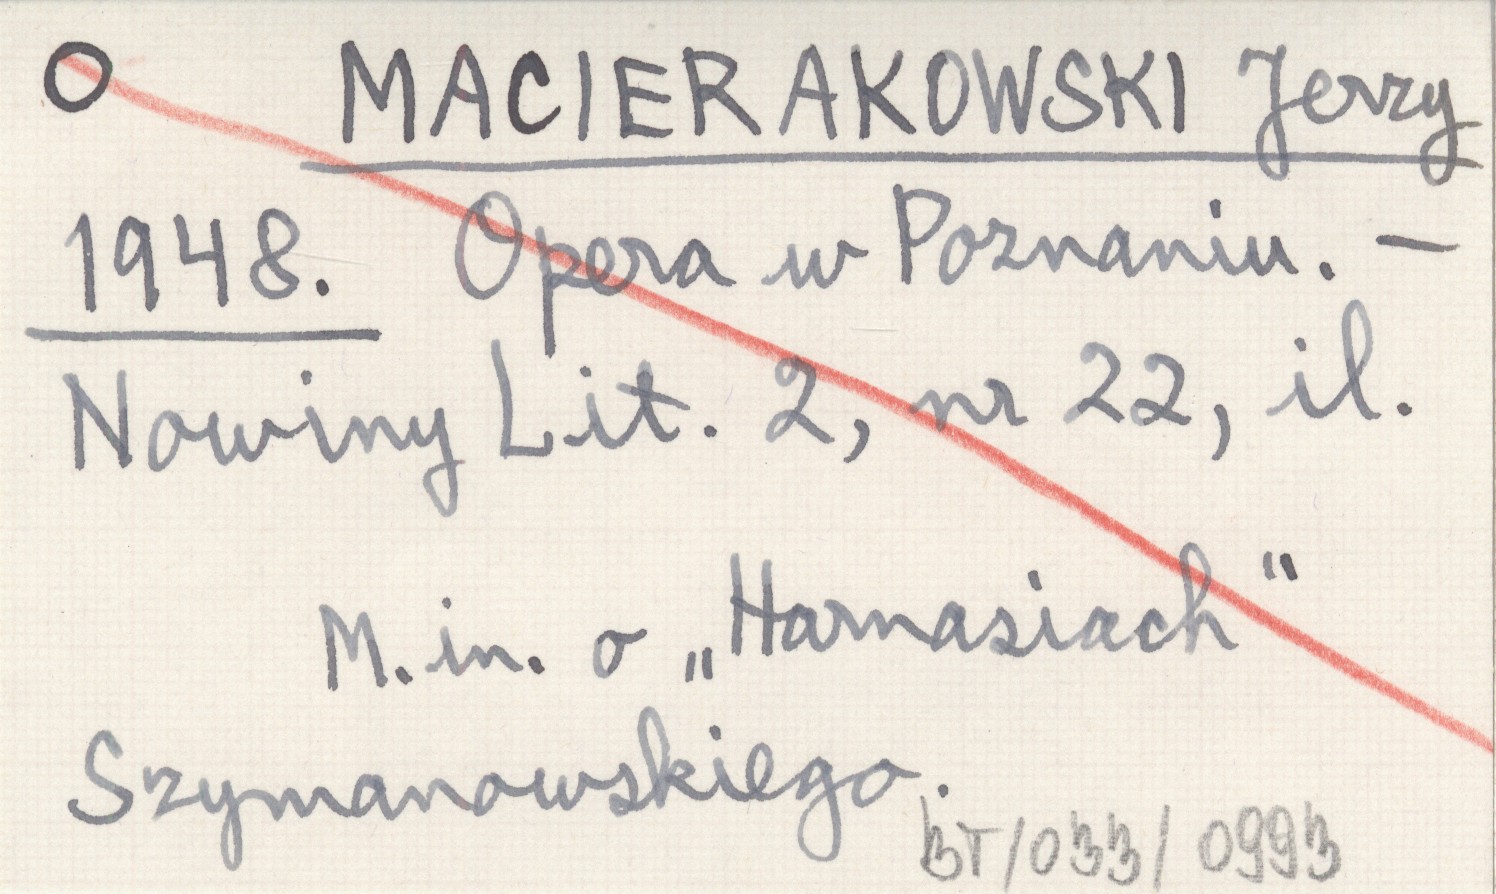 O MACIERAKOWSKI Jerzy
1948. Opera w Poznaniu. —
Nowiny Lit. 2, nr 22, il.
M. in. o „Harnasiach"
Szymanowskiego.
BT/033/0993